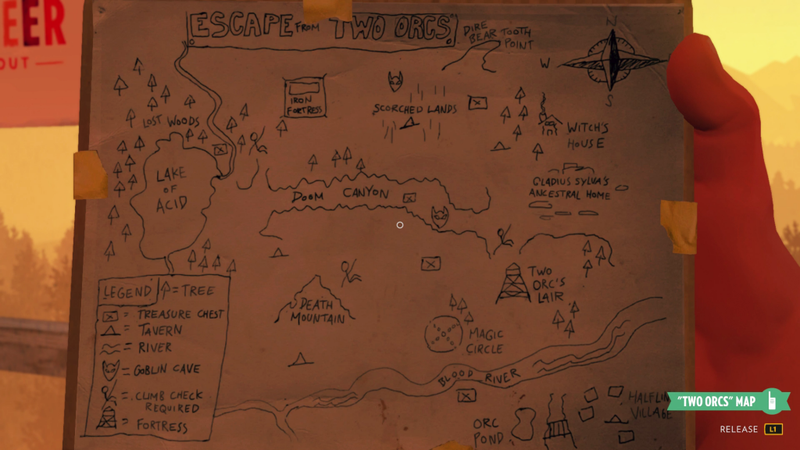 EER
OUT
ESCAPE FROM TWO ORCS
DIRE
BEAR TOOTH
POINT
N
W
S
IRON
FORTRESS
SCORCHED LANDS
LOST WOODS
WITCH'S
HOUSE
LAKE
OF
ACID
DOOM CANYON
GLADIUS SYLVA'S
ANCESTRAL HOME
TWO
ORC'S
LAIR
DEATH
MOUNTAIN
MAGIC
CIRCLE
BLOOD RIVER
ORC
POND
VILLAGE
LEGEND
= TREE
= TREASURE CHEST
= TAVERN
= RIVER
= GOBLIN CAVE
= CLIMB CHECK
REQUIRED
= FORTRESS
"TWO ORCS" MAP
RELEASE L1